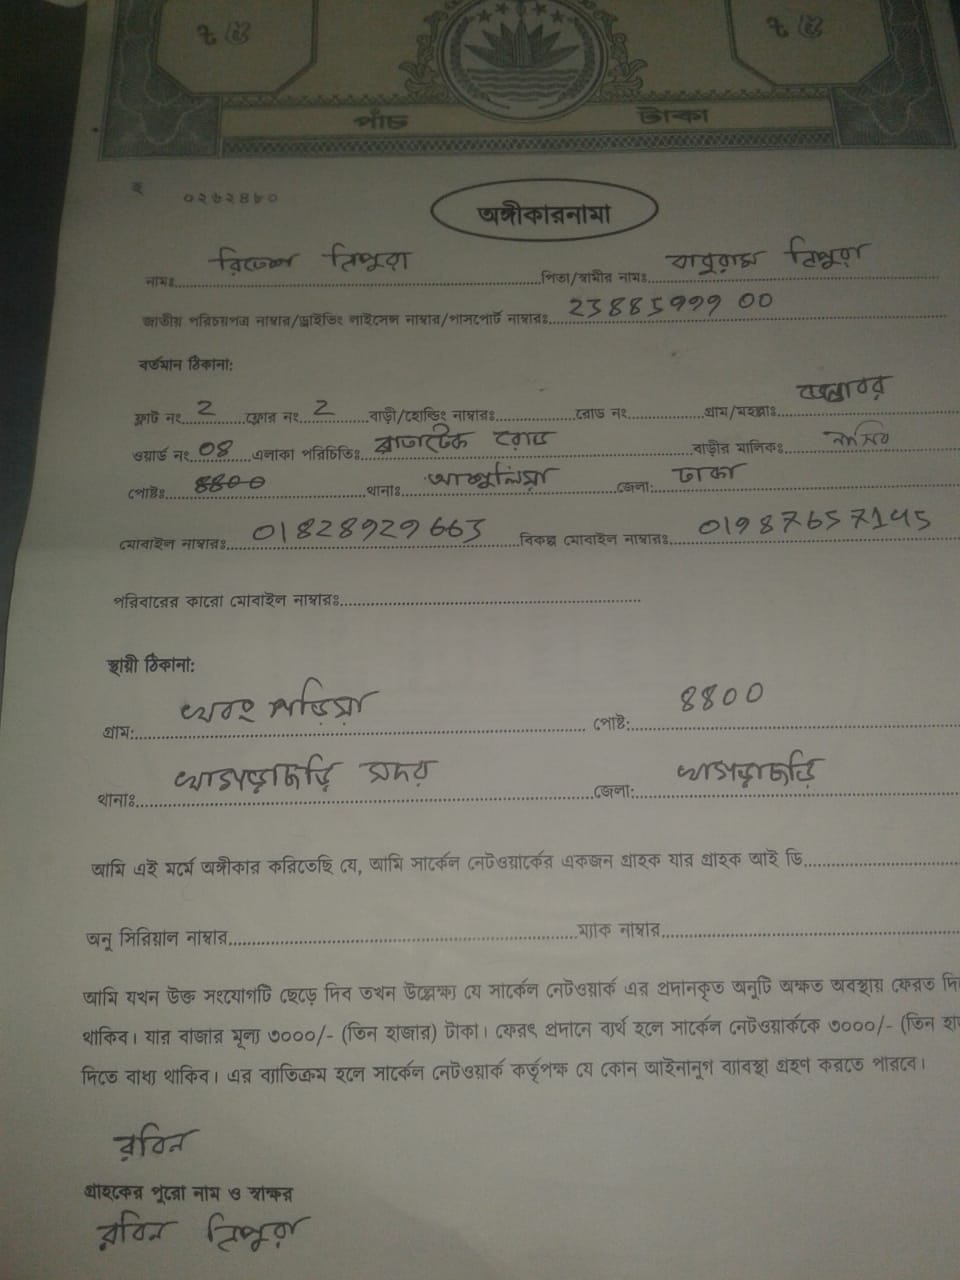 ৳ ৫ ৳ ৫
পাঁচ টাকা
০২৬২৪৮০
অঙ্গীকারনামা
নামঃ রিতেশ ত্রিপুরা পিতা/স্বামীর নামঃ বাবুরাম ত্রিপুরা
জাতীয় পরিচয়পত্র নাম্বার/ড্রাইভিং লাইসেন্স নাম্বার/পাসপোর্ট নাম্বারঃ
বর্তমান ঠিকানা:
ফ্লাট নং 2 ফ্লোর নং 2 বাড়ী/হোল্ডিং নাম্বারঃ রোড নং গ্রাম/মহল্লাঃ
ওয়ার্ড নং 08 এলাকা পরিচিতিঃ রোড বাড়ীর মালিক: নাসির
পোষ্টঃ 8800 থানাঃ আশুলিয়া জেলা: ঢাকা
মোবাইল নাম্বারঃ 01828929663 বিকল্প মোবাইল নাম্বারঃ
পরিবারের কারো মোবাইল নাম্বারঃ
স্থায়ী ঠিকানা:
গ্রাম: খবং পড়িয়া পোষ্ট: 8800
থানাঃ খাগড়াছড়ি সদর জেলা: খাগড়াছড়ি
আমি এই মর্মে অঙ্গীকার করিতেছি যে, আমি সার্কেল নেটওয়ার্কের একজন গ্রাহক যার গ্রাহক আই ডি
অনু সিরিয়াল নাম্বার ম্যাক নাম্বার
আমি যখন উক্ত সংযোগটি ছেড়ে দিব তখন উল্লেক্ষ্য যে সার্কেল নেটওয়ার্ক এর প্রদানকৃত অনুটি অক্ষত অবস্থায় ফেরত দি
থাকিব। যার বাজার মূল্য ৩০০০/- (তিন হাজার) টাকা। ফেরৎ প্রদানে ব্যর্থ হলে সার্কেল নেটওয়ার্ককে ৩০০০/- (তিন হা
দিতে বাধ্য থাকিব। এর ব্যাতিক্রম হলে সার্কেল নেটওয়ার্ক কর্তৃপক্ষ যে কোন আইনানুগ ব্যাবস্থা গ্রহণ করতে পারবে।
রবিন
গ্রাহকের পুরো নাম ও স্বাক্ষর
রবিন ত্রিপুরা